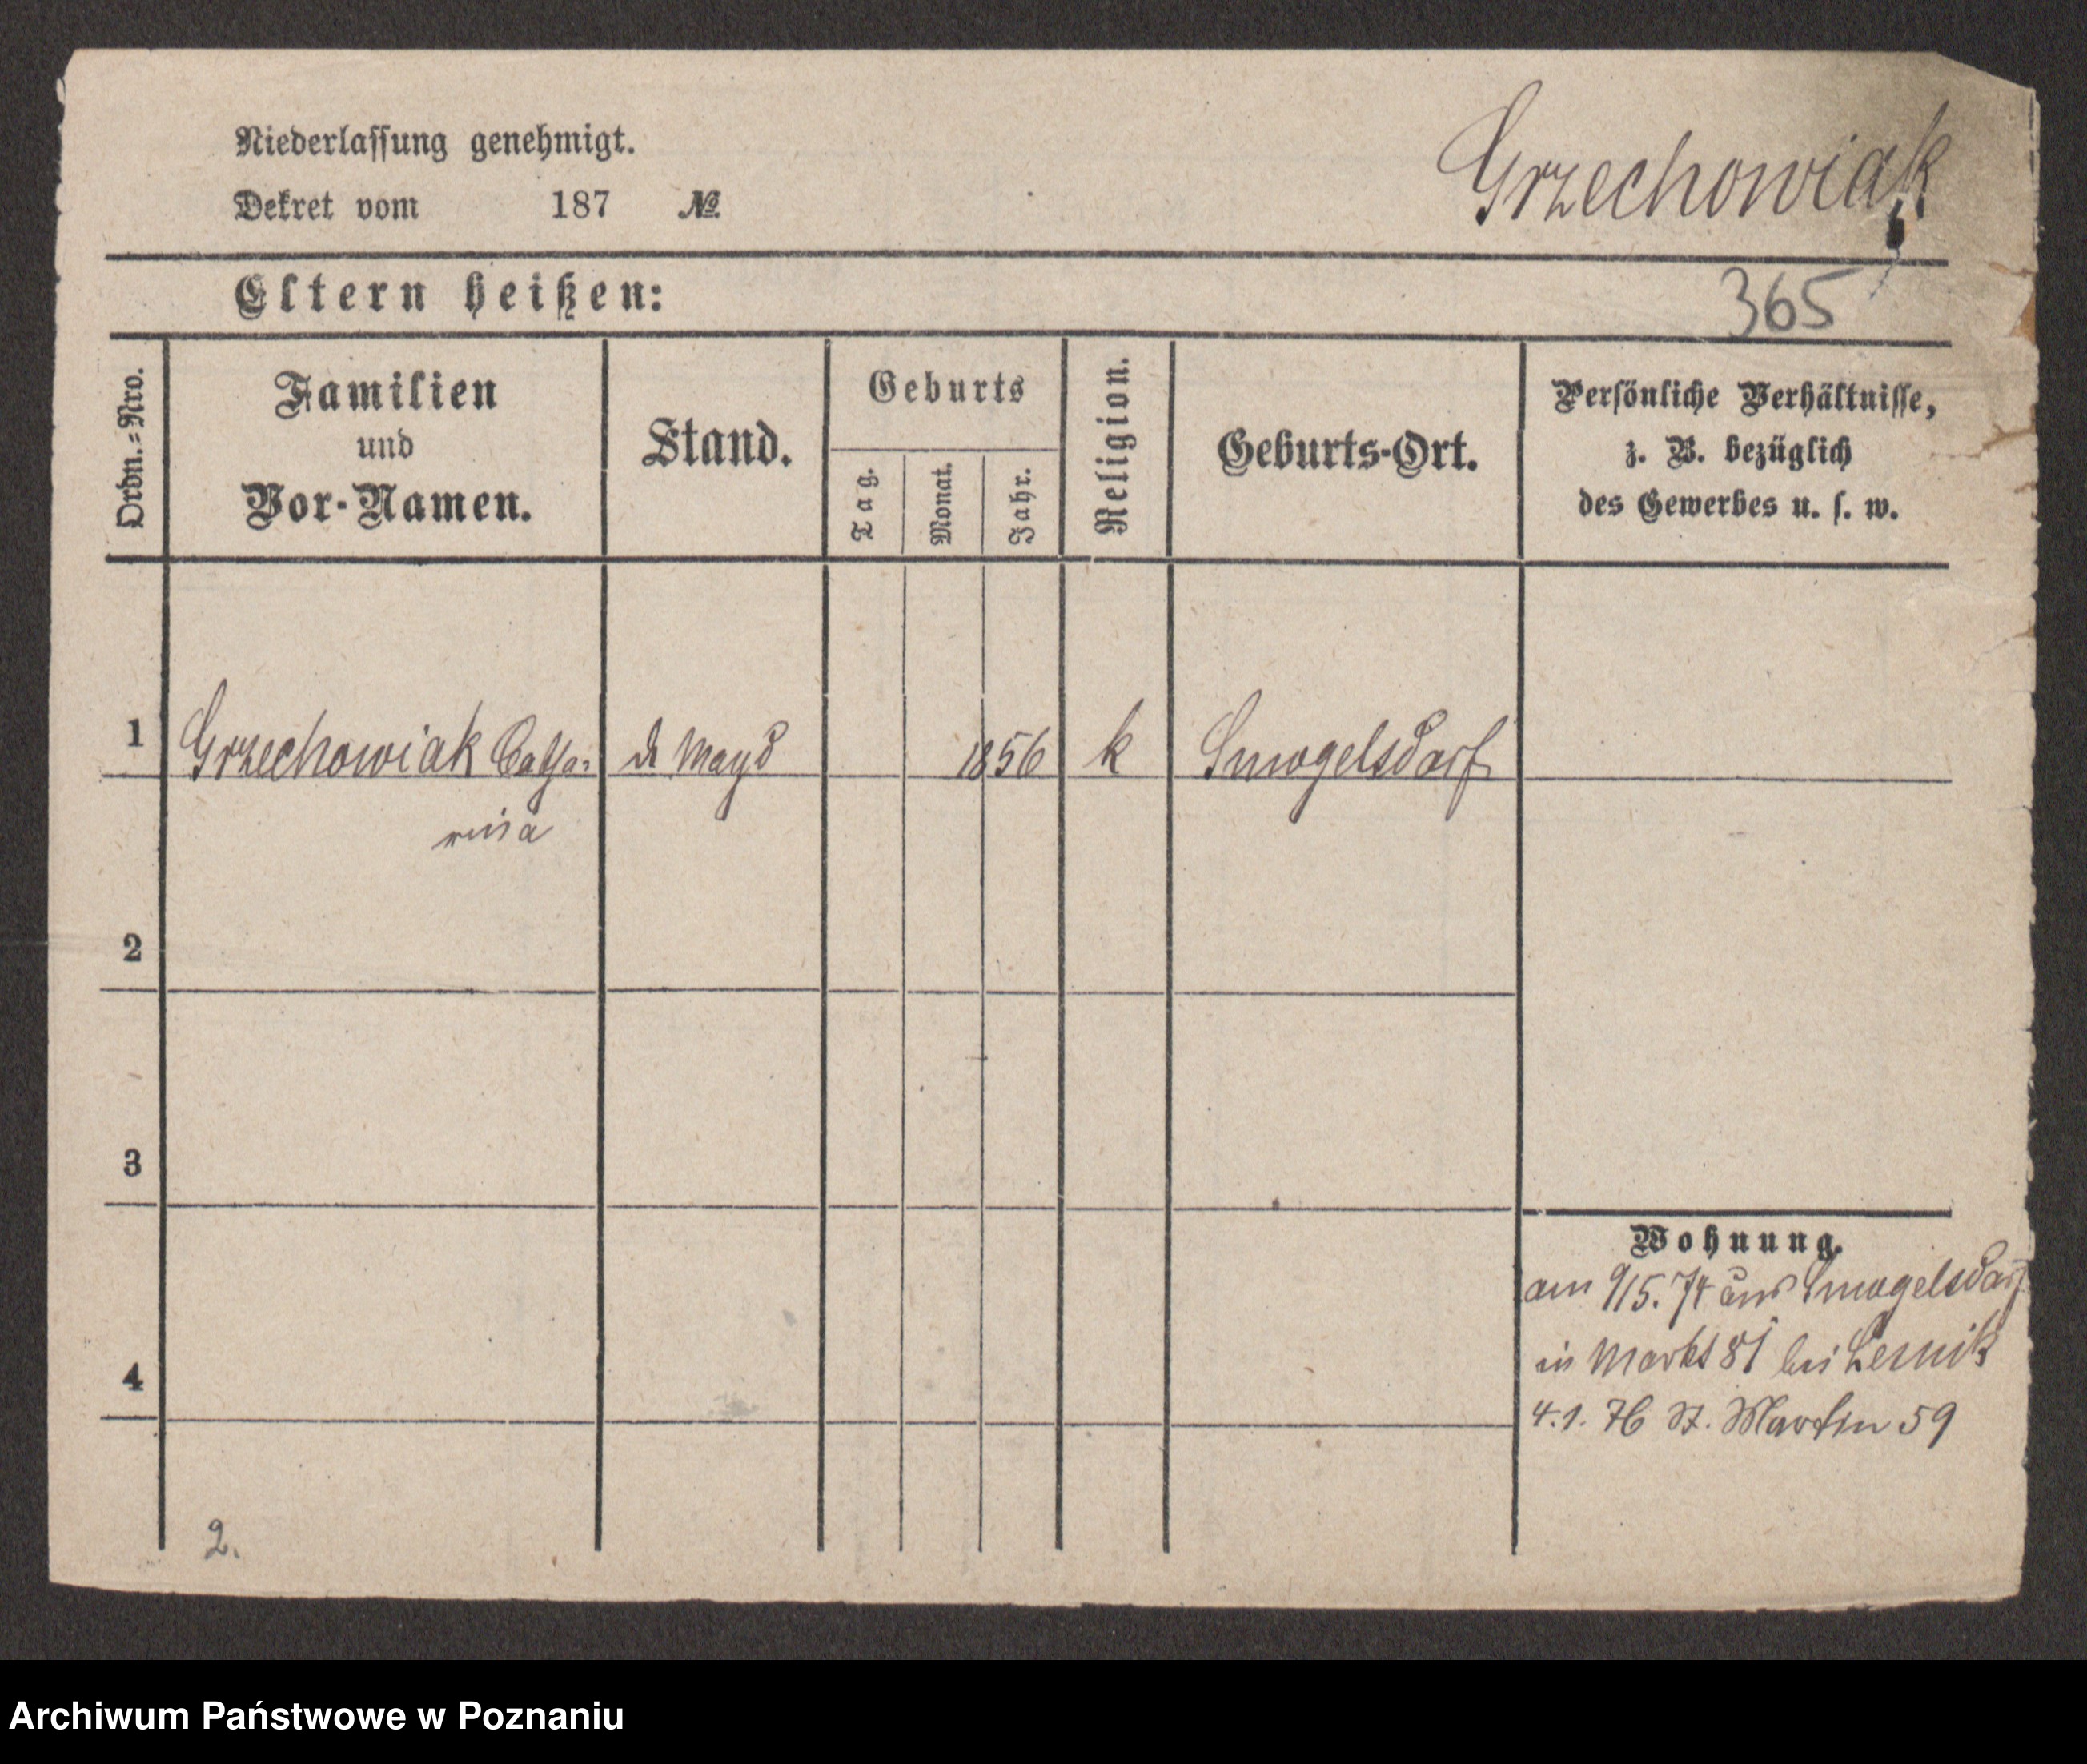 Niederlassung genehmigt.
Dekret vom 187 №
Grzechowiak
Eltern heißen:
365
Ordn.=Nro.
Familien
und
Vor-Namen.
Stand.
Geburts
Tag.
Monat.
Jahr.
Religion.
Geburts-Ort.
Persönliche Verhältnisse,
z. B. bezüglich
des Gewerbes u. s. w.
1 Grzechowiak Catha- Magd 1856 k Smogelsdorf
rina
2
3
4
Wohnung.
am 9/5. 74 aus Smogelsdorf
in Markt 81 bei
4.1. 76 St. Martin 59
2.
Archiwum Państwowe w Poznaniu